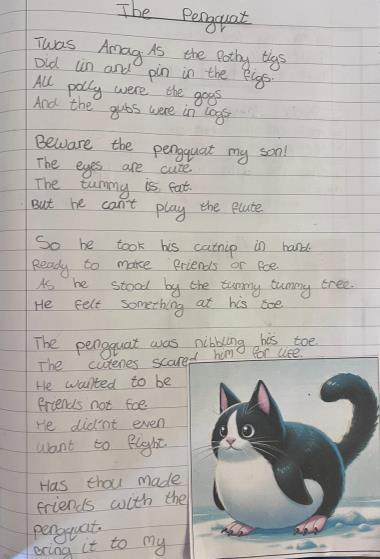 The Pengquat
Twas Amag. As the fothy tigs
Did lin and pin in the figs.
All polly were the gogs
And the gubs were in logs.
Beware the pengquat my son!
The eyes are cute.
The tummy is fat.
But he can't play the flute.
So he took his catnip in hand.
Ready to make friends or foe.
As he stood by the tummy tummy tree.
He felt something at his toe.
The pengquat was nibbling his toe.
The cutenes scared him for life.
He wanted to be
friends not foe
He did'nt even
want to fight.
Has thou made
friends with the
pengquat.
bring it to my